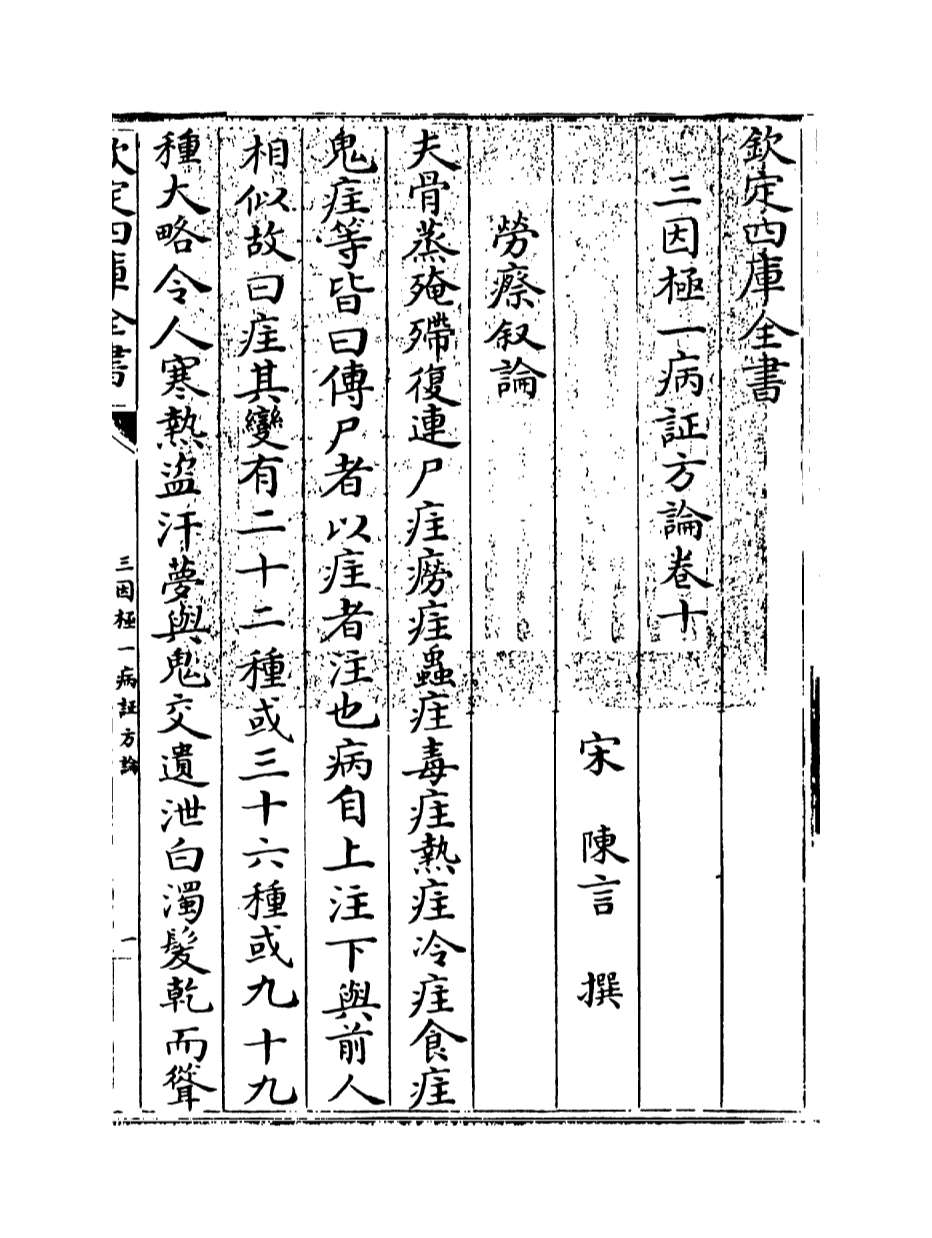 欽定四庫全書
三因極一病証方論卷十
宋 陳言 撰
勞瘵叙論
夫骨蒸殗殜復連尸疰癆疰蟲疰毒疰熱疰冷疰食疰
鬼疰等皆曰傳尸者以疰者注也病自上注下與前人
相似故曰疰其變有二十二種或三十六種或九十九
種大略令人寒熱盗汗夢與鬼交遺泄白濁髮乾而聳
欽定四庫全書
三因極一病証方論
一